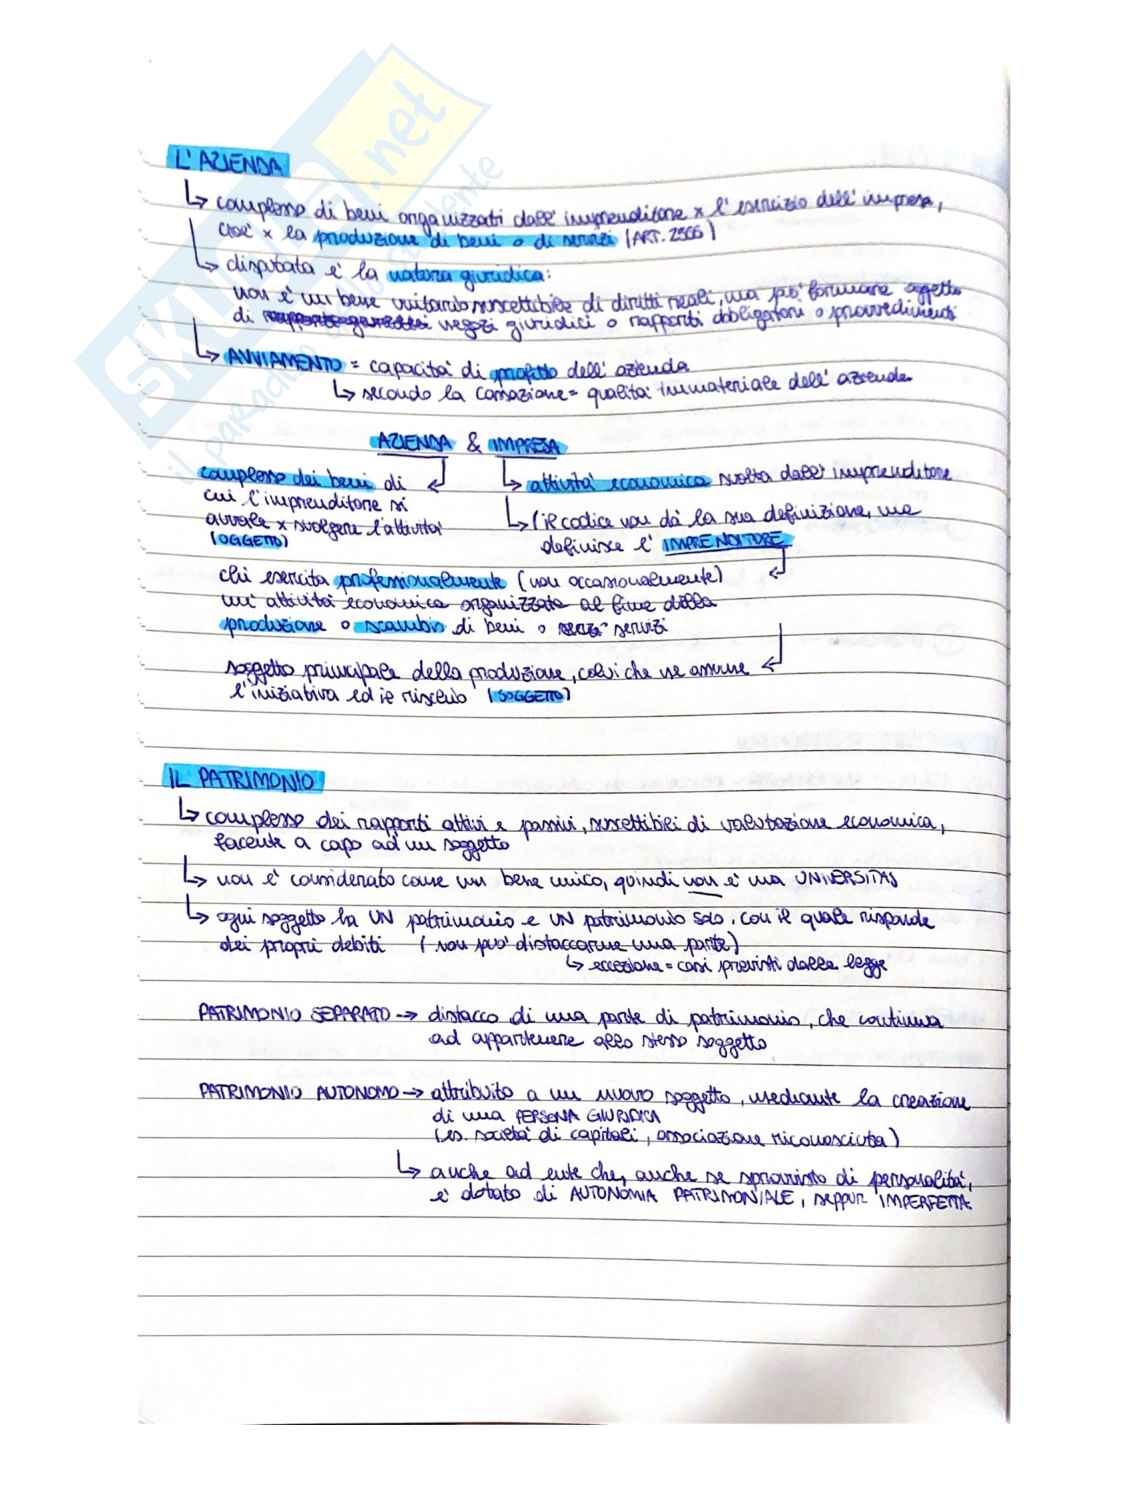 SKUOLA.net
il paradiso dello studente
L'AZIENDA
↳ complesso di beni organizzati dall'imprenditore x l'esercizio dell'impresa,
cioè x la produzione di beni o di servizi (ART. 2555)
↳ disputata è la natura giuridica:
non è un bene unitario suscettibile di diritti reali, ma può formare oggetto
di negozi giuridici o rapporti obbligatori o provvedimenti
↳ AVVIAMENTO = capacità di profitto dell'azienda
↳ secondo la Cassazione = qualità immateriale dell'azienda
AZIENDA & IMPRESA
complesso dei beni di
cui l'imprenditore si
avvale x svolgere l'attività
(OGGETTO)
↳ attività economica svolta dall'imprenditore
↳ (il codice non dà la sua definizione, ma
definisce l'IMPRENDITORE
chi esercita professionalmente (non occasionalmente)
un'attività economica organizzata al fine della
produzione o scambio di beni o servizi
soggetto principale della produzione, colui che ne assume
l'iniziativa ed il rischio (SOGGETTO)
IL PATRIMONIO
↳ complesso dei rapporti attivi e passivi, suscettibili di valutazione economica,
facente a capo ad un soggetto
↳ non è considerato come un bene unico, quindi non è una UNIVERSITAS
↳ ogni soggetto ha UN patrimonio e UN patrimonio solo, con il quale risponde
dei propri debiti (non può distaccarne una parte)
↳ eccezione = casi previsti dalla legge
PATRIMONIO SEPARATO → distacco di una parte di patrimonio, che continua
ad appartenere allo stesso soggetto
PATRIMONIO AUTONOMO → attribuito a un nuovo soggetto, mediante la creazione
di una PERSONA GIURIDICA
(es. società di capitali, associazione riconosciuta)
↳ anche ad ente che, anche se sprovvisto di personalità,
è dotato di AUTONOMIA PATRIMONIALE, seppur IMPERFETTA